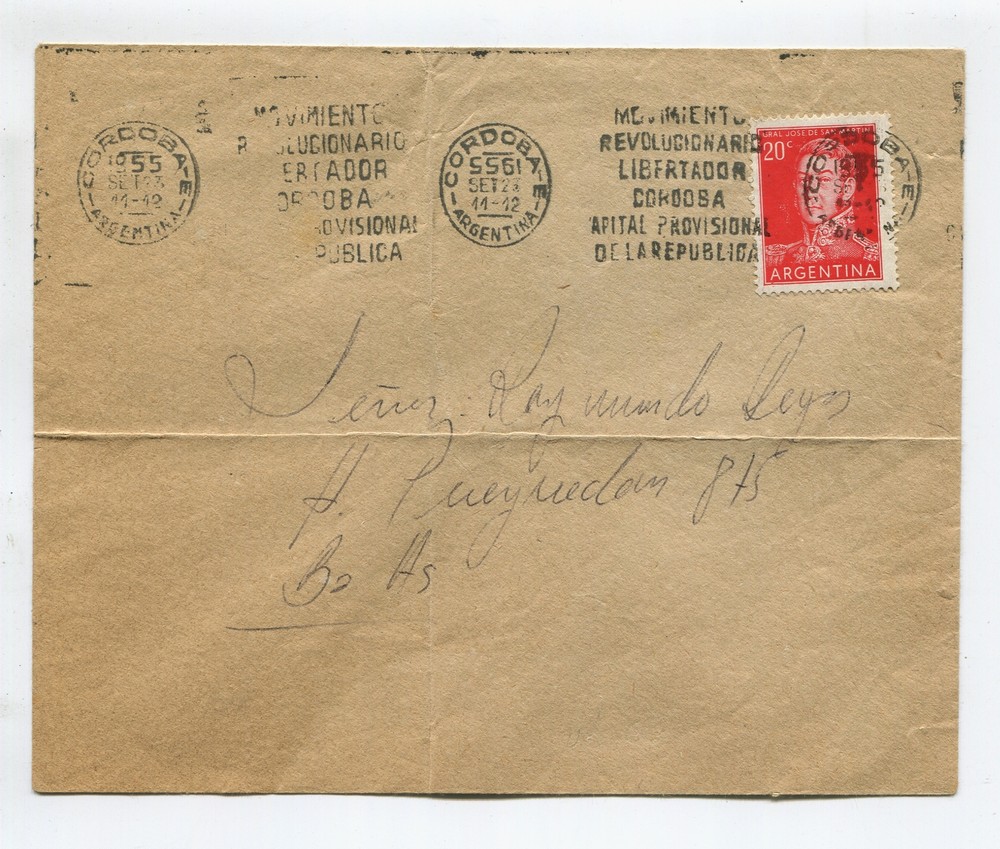 CORDOBA-E
1955
SET 23
11-12
-ARGENTINA-
MOVIMIENTO
LUCIONARIO
ERTADOR
ORDOBA
ROVISIONAL
PUBLICA
CORDOBA-E
5561
SET 23
11-12
-ARGENTINA-
MOVIMIENTO
REVOLUCIONARIO
LIBERTADOR
CORDOBA
APITAL PROVISIONAL
DE LA REPUBLICA
GRAL JOSE DE SAN MARTIN
20c
ARGENTINA
Señor Raymundo Reyes
H. Pueyrredon 875
Bs As